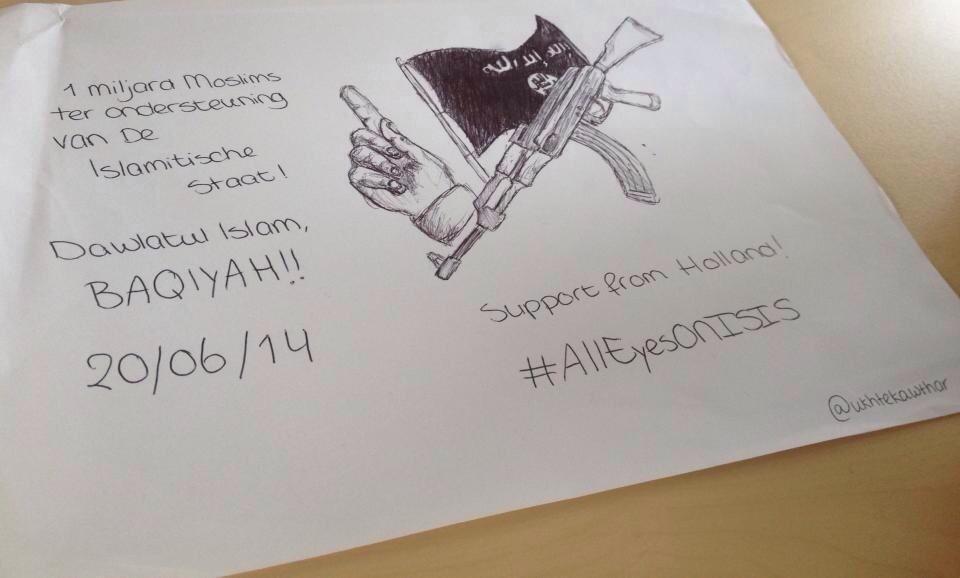 1 miljard Moslims
ter ondersteuning
van De
Islamitische
Staat!
Dawlatul Islam,
BAQIYAH!!
20/06/14
Support from Holland!
#AllEyesOnISIS
@ukhtekawthar